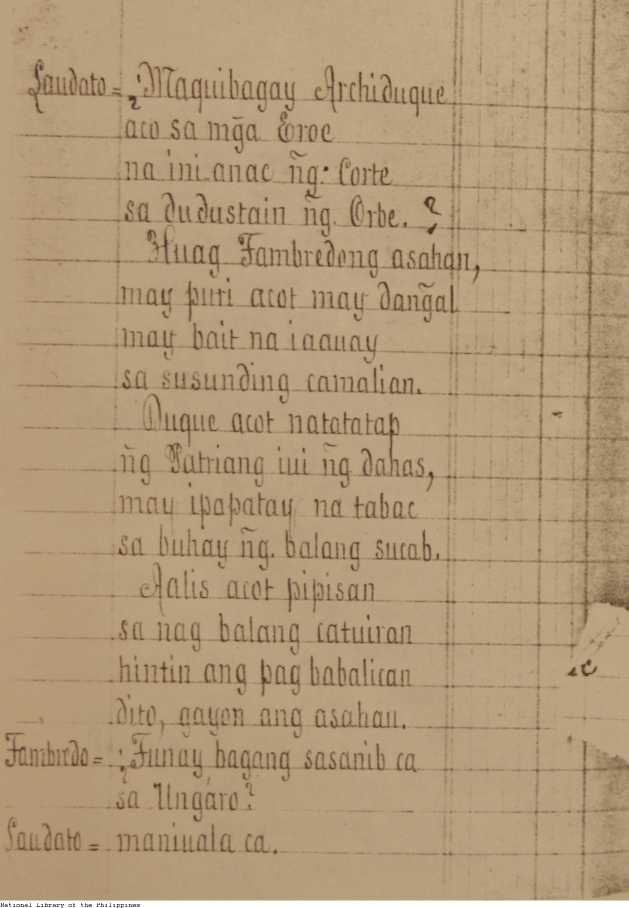 Laudato = ¿Maquibagay Archiduque
aco sa mg̃a Eroe
na ini anac ñg. Corte
sa dudustain ñg. Orbe. ?
Huag Fambredong asahan,
may puri acot may dang̃al
may bait na iaauay
sa susunding camalian.
Duque acot natatatap
ñg Patriang iui ñg dahas,
may ipapatay na tabac
sa buhay ñg. balang sucab.
Aalis acot pipisan
sa nag balang catuiran
hintin ang pag babalican
dito, gayon ang asahan.
Fambredo = ¿Tunay bagang sasanib ca
sa Ungáro?
Laudato = maniuala ca.
National Library of the Philippines